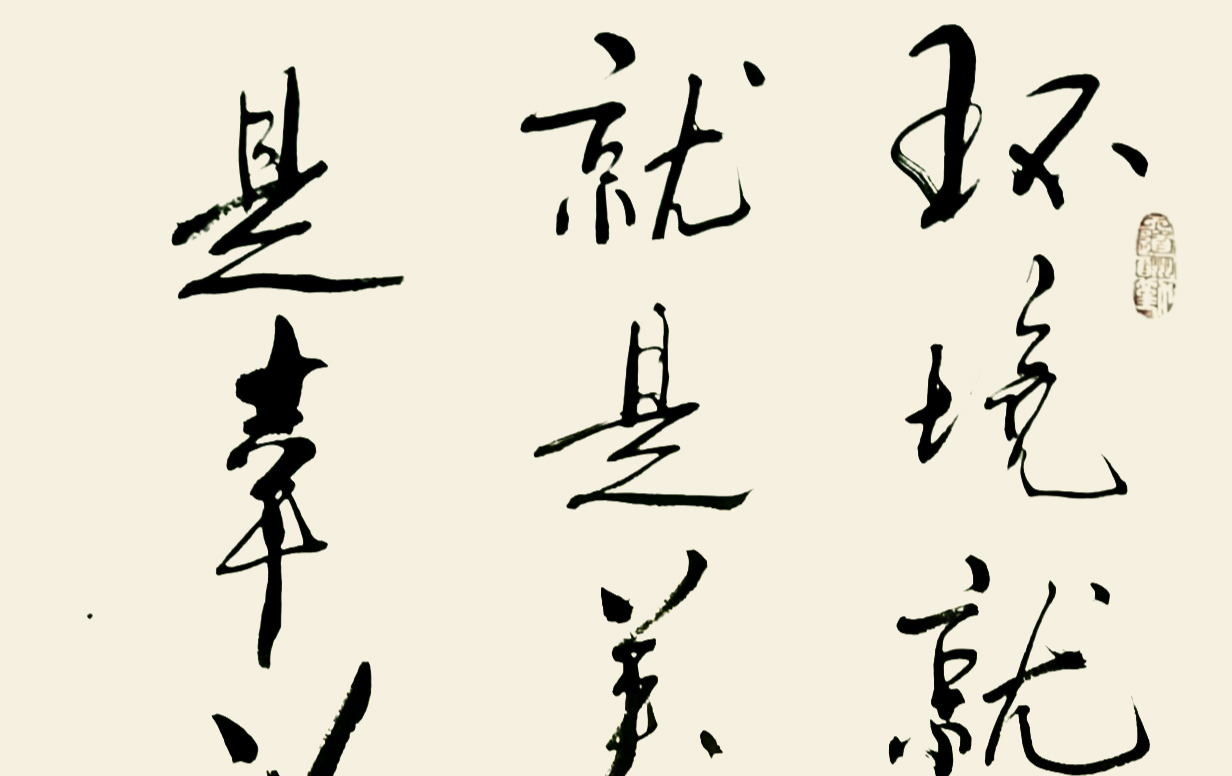 环境就
就是美
是幸